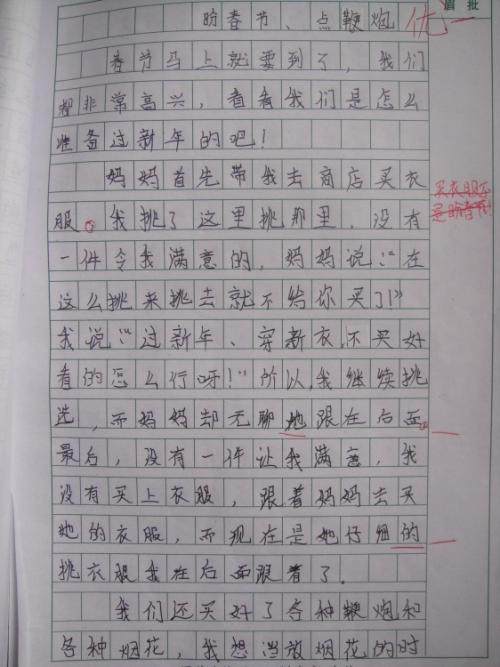 眉 批
盼春节、点鞭炮 优一
春节马上就要到了，我们
都非常高兴，看看我们是怎么
准备过新年的吧！
妈妈首先带我去商店买衣 买衣服不
服。我挑了这里挑那里，没有 是盼春节
一件令我满意的，妈妈说：“在
这么挑来挑去就不给你买了！”
我说：“过新年、穿新衣，不买好
看的怎么行呀！”所以，我继续挑
选，而妈妈却无聊地跟在后面。
最后，没有一件让我满意，我
没有买上衣服，跟着妈妈去买
她的衣服，而现在是她仔细的
挑衣服我在后面跟着了。
我们还买好了各种鞭炮和
各种烟花，我想当放烟花的时